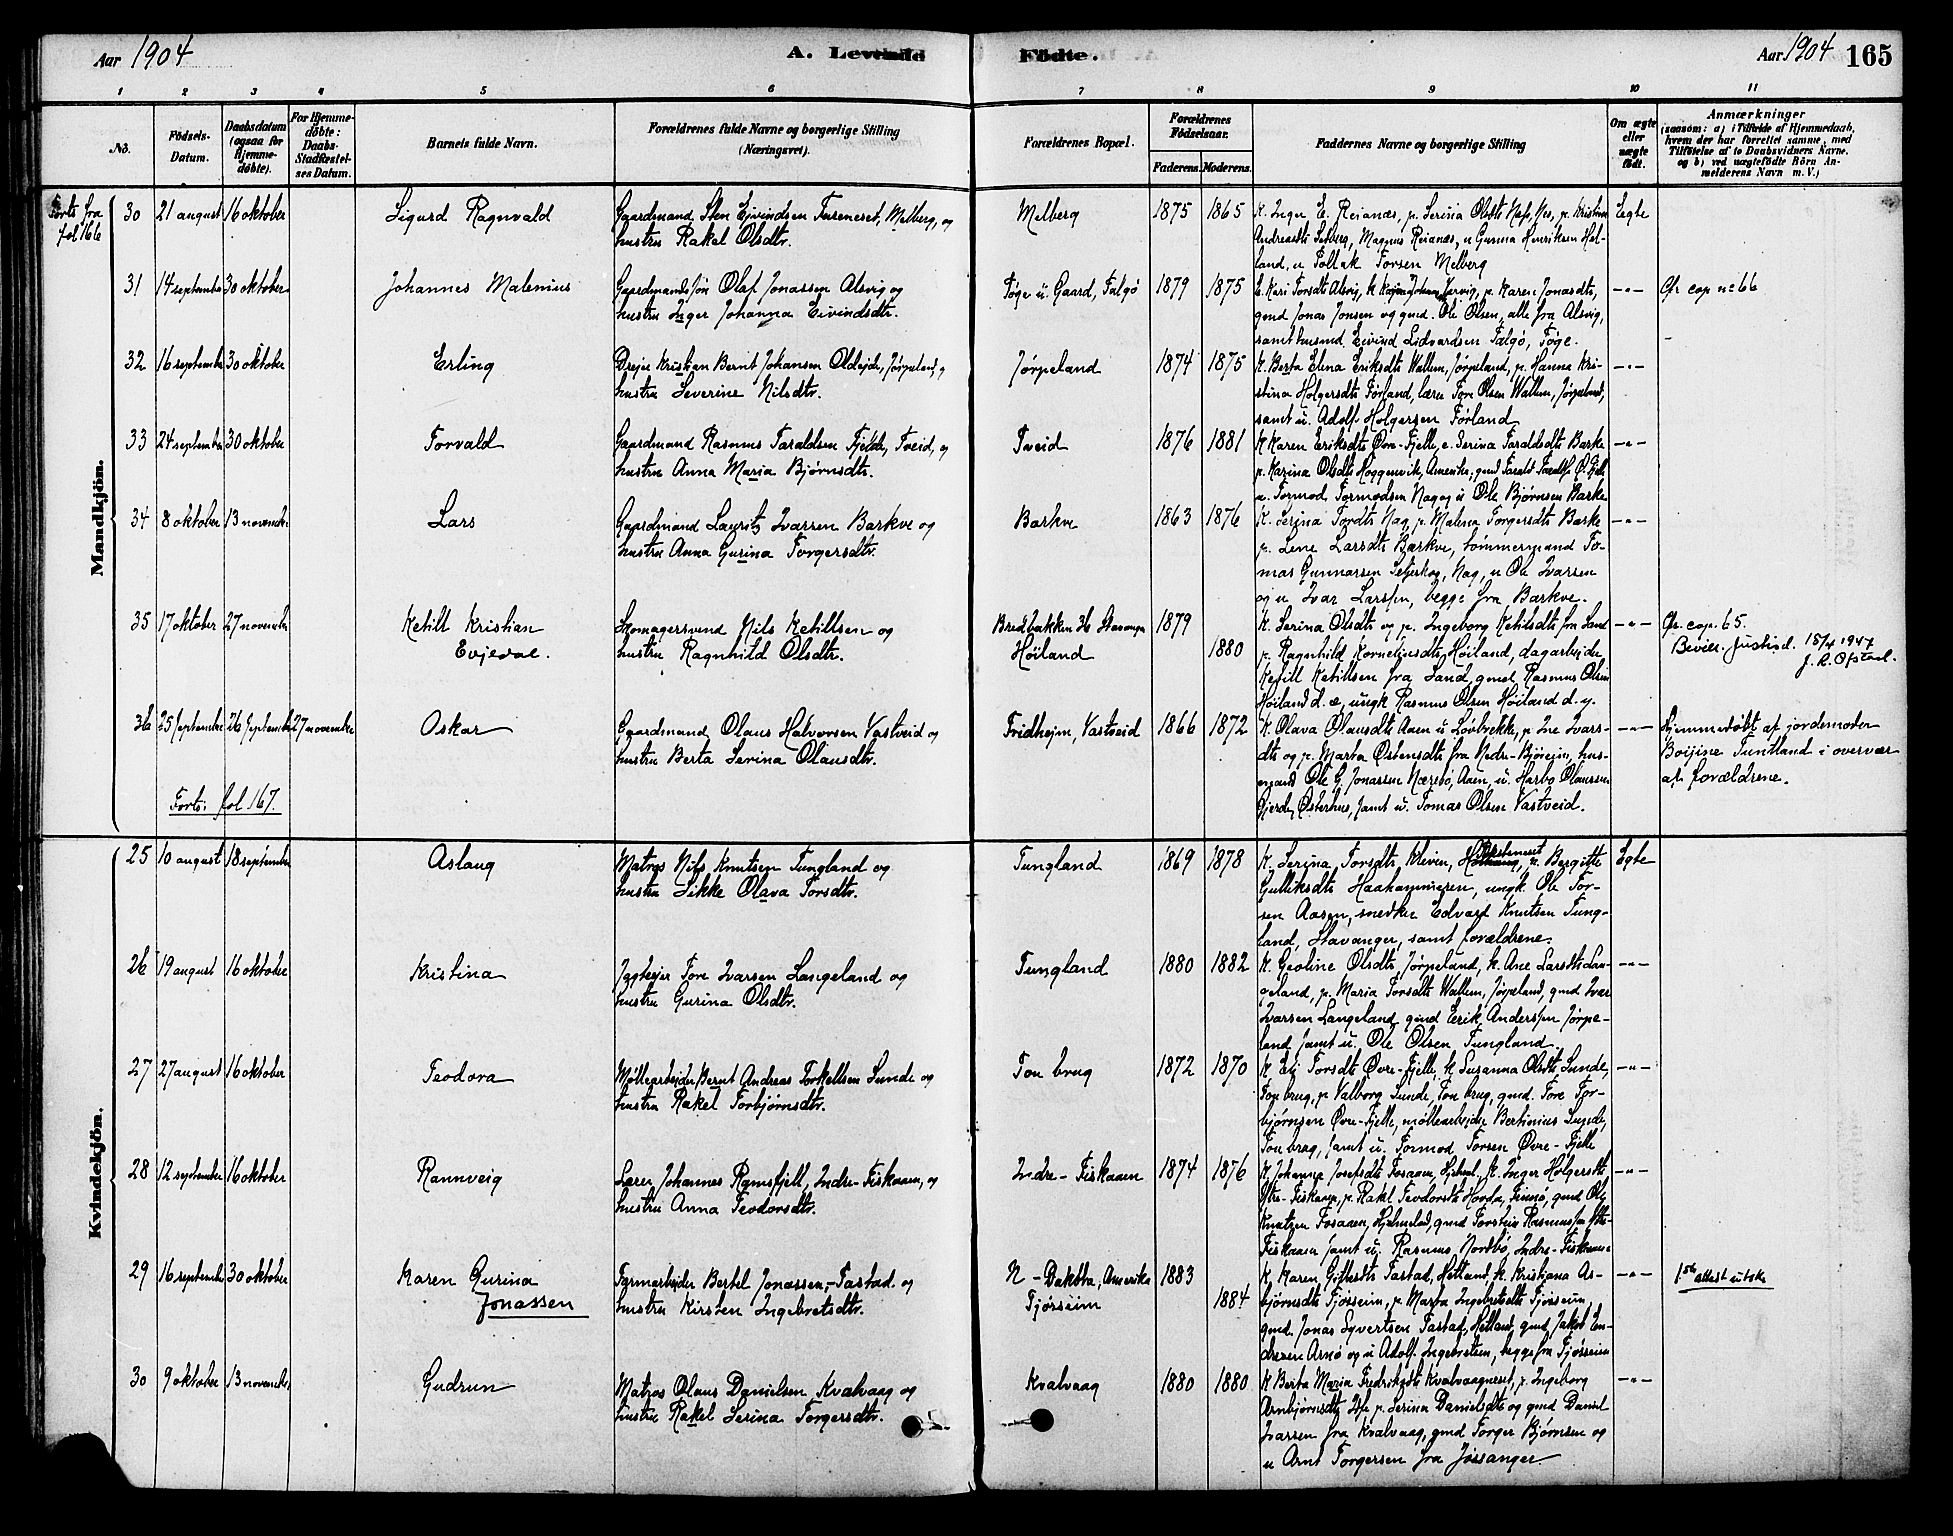 Aar 1904
A. Levende
Födte.
Aar 1904
165
1 2 3 4 5 6 7 8 9 10 11
No.
Födsels-Datum.
Daabsdatum (ogsaa for Hjemme-döbte).
For Hjemme-döbte: Daabs-Stadfæstel-ses Datum.
Barnets fulde Navn.
Forældrenes fulde Navne og borgerlige Stilling (Næringsvei).
Forældrenes Bopæl.
Forældrenes Födselsaar.
Faderens. Moderens.
Faddernes Navne og borgerlige Stilling
Om ægte eller uægte födt.
Anmærkninger
(saasom: a) i Tilfælde af Hjemmedaab, hvem der har forrettet samme, med Tilföielse af to Daabsvidners Navne, og b) ved uægtefödte Börn An-melderens Navn m. V.)
Forts fra
fol 166
Mandkjön.
30 21 august 16 oktober Sigurd Ragnvald
Gaardmand Sten Eivindsen Tarneset, Melberg, og
hustru Rakel Olsdtr.
Melberg 1875 1865
K. Inger E. Reianæs, p. Serina Olsdtr Næs, p. Kristine
Andreasdtr Selberg, Magnus Reianæs, u Gunna Henriksen Hel-
land, u Tollak Torsen Melberg
Egte
31 14 september 30 oktober Johannes Malenius
Gaardmandssøn Olaf Jonassen Alsvig og
hustru Inger Johanna Eivindsdtr.
Tøge u. Gaard, Talgö 1879 1875
E. Kari Torsdtr Alsvig, p. Karen Jonasdtr,
gmd Jonas Jonsen og gmd. Ole Olsen, alle fra Alsvig,
samt husmd. Eivind Lidvardsen Talgö, Tøge.
—"—
Cfr cop nº 66
32 16 september 30 oktober Erling
Dreier Kristian Bernt Johansen Oldeide, Jørpeland, og
hustru Severine Nilsdtr.
Jørpeland 1874 1875
K. Berta Elena Eriksdtr Wallem, Jørpeland, p. Hanna Kri-
stina Holgersdtr Førland, lærer Tore Olsen Wallem, Jørpeland,
samt u. Adolf Holgersen Førland
—"—
33 24 september 30 oktober Torvald
Gaardmand Rasmus Taraldsen Fjelde, Tveid, og
hustru Anna Maria Bjørnsdtr.
Tveid 1876 1881
K Karen Eriksdtr Øvre-Fjelle, e. Serina Taraldsdtr Barke
p. Karina Olsdtr Hoggenvik, Amerika, gmd Tarald
u. Tormod Tormodsen Nag og u Ole Bjørnsen Barke
—"—
34 8 oktober 13 novembr. Lars
Gaardmand Laurits Ivarsen Barkve og
hustru Anna Gurina Torgersdtr.
Barkve 1863 1876
K. Serina Tordtr Nag, p. Malena Torgersdtr Barke
p. Lene Larsdtr Barkve, tømmermand To-
mas Gunnarsen Seljeskog, Nag, u Ole Ivarsen
og u Ivar Larssen, begge fra Barkve.
—"—
35 17 oktober 27 november Ketill Kristian
Evjedal.
Skomagersvend Nils Ketillsen og
hustru Ragnhild Olsdtr.
Bredbakken 36 Stavanger
Høiland 1879
1880
K. Serina Olsdtr og p. Ingeborg Ketilsdtr fra Sand
p. Ragnhild Korneliusdtr, Høiland, dagarbeider
Ketill Ketillsen fra Sand, gmd Rasmus Olsen
Høiland d. æ, ungk Rasmus Olsen Høiland d. y.
—"—
Cfr. cop. 65.
Bevill. Justisd. 15/4 1947
J. R. Ofstad.
36 25 September 26 September 27 november Oskar
Gaardmand Olaus Halvorsen Vastveid og
hustru Berta Serina Olausdtr.
Fridheim, Vastveid 1866 1872
K. Olava Olausdtr Aaen u Løvbrekke, p. Ine Ivars-
dtr og p. Marta Østensdtr fra Nedre-Bjørheim, hus-
mand Ole G. Jonassen Nærebö, Aaen, u. Harbo Olaussen
Gjerde, Østerhus, samt u. Tomas Olsen Vastveid.
—"—
Hjemmedøbt af jordemoder
Tuntland i overvær
af forældrene.
Forts: fol 167.
Kvindekjön.
25 10 august 18 september Aslaug
Matros Nils Knutsen Tungland og
hustru Sikke Olava Torsdtr.
Tungland 1869 1878
K. Serina Torsdtr Kleven, p. Bergitte
Gulliksdtr Haahammeren, ungk. Ole Tor-
sen Aasen, snedker Edvard Knutsen Tung-
land, Stavanger, samt forældrene.
Egte
26 19 august 16 oktober Kristina
Tore Ivarsen Langeland og
hustru Gurina Olsdtr.
Tungland 1880 1882
K. Geoline Olsdtr, Jørpeland, k. Ane Larsdtr Lan-
geland, p. Maria Torsdtr Wallem, Jørpeland, gmd Ivar
Ivarsen Langeland, gmd Erik Anderssen Jørpe-
land samt u. Ole Olsen Tungland
—"—
27 27 august 16 oktober Teodora
Møllearbeider Bernt Andreas Torkellsen Sunde og
hustru Rakel Torbjørnsdtr.
Tou brug 1872 1870
K Torsdtr Øvre-Fjelle, k Susanna Olsdtr Sunde,
Tou brug, p. Valborg Sunde, Tou brug, gmd. Tore Tor-
bjørnsen Øvre-Fjelle, møllearbeider Bertinius Sunde,
Tou brug, samt u. Tormod Torsen Øvre-Fjelle
—"—
28 12 september 16 oktober Rannveig
Lærer Johannes Ramsfjell, Indre-Fiskaaen, og
hustru Anna Teodorsdtr.
Indre-Fiskaaen 1874 1876
K. Johanna Josefsdtr Tosaaen, Hjelmel., k. Inger Holgersdtr
Ytre-Fiskaaen, p. Rakel Teodorsdtr Horda, Finnö, gmd Ole
Knutsen Tosaaen, Hjelmeland, gmd Torstein Rasmussen Ytre-
Fiskaaen samt u. Rasmus Nordbö, Indre-Fiskaaen
—"—
29 16 september 30 oktober Karen Gurina
Jonassen
Farmarbeider Bertel Jonassen, Tastad og
hustru Kirsten Ingebretsdtr.
N-Dakota, Amerika
Tjøsseim 1883
1884
K. Karen Tastad, Hetland, k. Kristiana As-
bjørnsdtr Tjøsseim, p. Marta Ingebretsdtr Tjøsseim,
gmd. Jonas Syvertsen Tastad, Hetland, gmd Jakob En-
dresen Arnø og u Adolf Ingebretsen, begge fra Tjøsseim
—"—
1st attest utst.
30 9 oktober 13 novembr. Gudrun
Matros Olaus Danielsen Kvalvaag og
hustru Rakel Serina Torgersdtr.
Kvalvaag 1880 1880
K Berta Maria Fredriksdtr Kvalvaagneset, p. Ingeborg
Arnbjørnsdtr p. Serina Danielsdtr og gmd Daniel
Ivarsen fra Kvalvaag, gmd Torger Bjørnsen og
u Arnt Torgersen fra Jøssanger
—"—